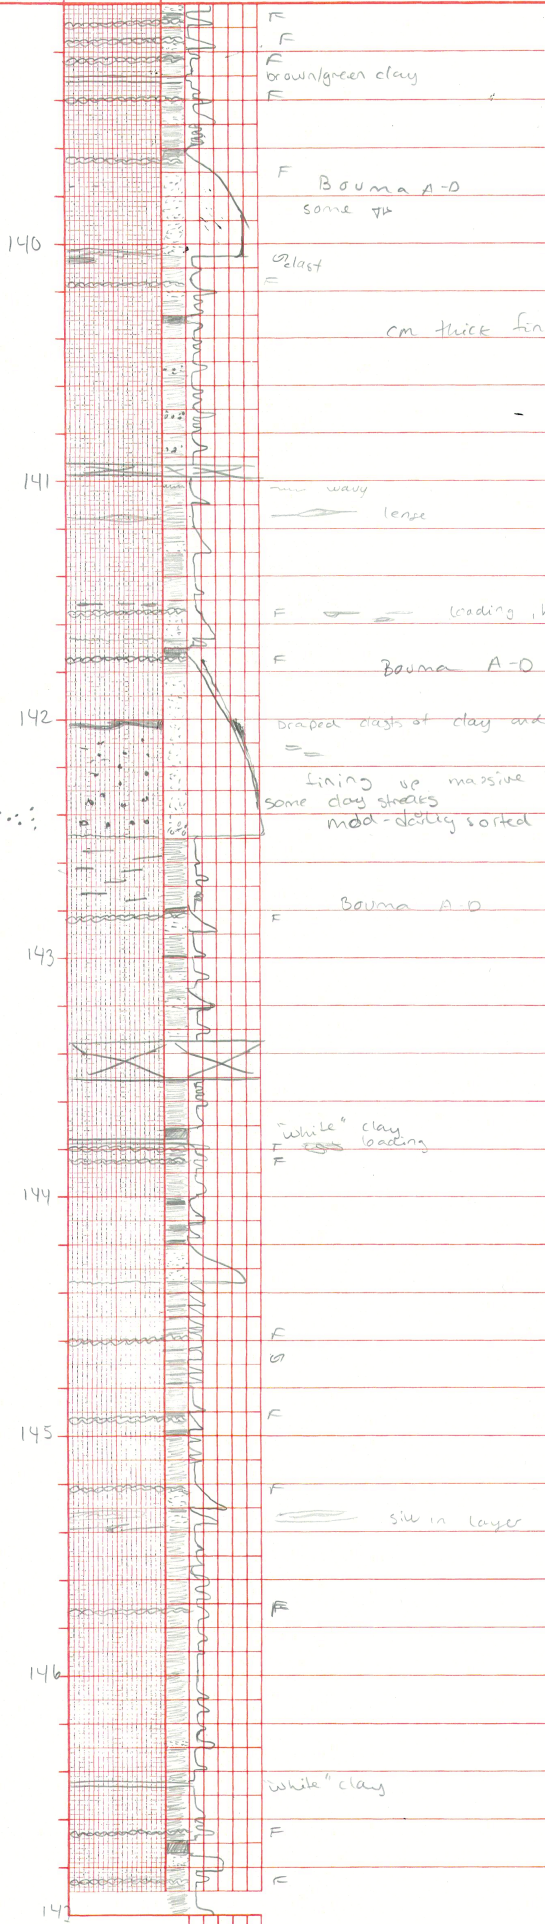 F
F
F
brown/green clay
F
F
Bouma A-D
some
140
clast
F
cm thick fin
141
wavy
lense
F
loading, 
F
Bouma A-D
142
Draped clasts of clay and
fining up massive
some clay streaks
sorted
Bouma A-D
F
143
"white" clay
F loading
F
144
F
F
145
F
in layer
F
146
"white" clay
F
F